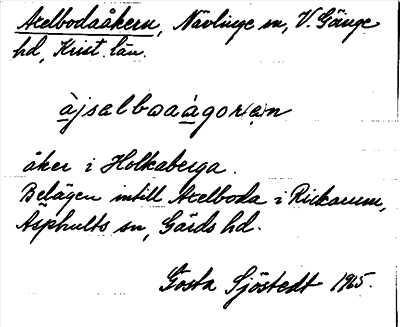 Axelbodaåkern, Nävlinge sn, V. Göinge
hd, Krist. län.
àjsəlbωaàgor(ə)n
åker i Holkaberga.
Belägen intill Axelboda i Rickarum,
Äsphults sn, Gärds hd.
Gösta Sjöstedt 1965.